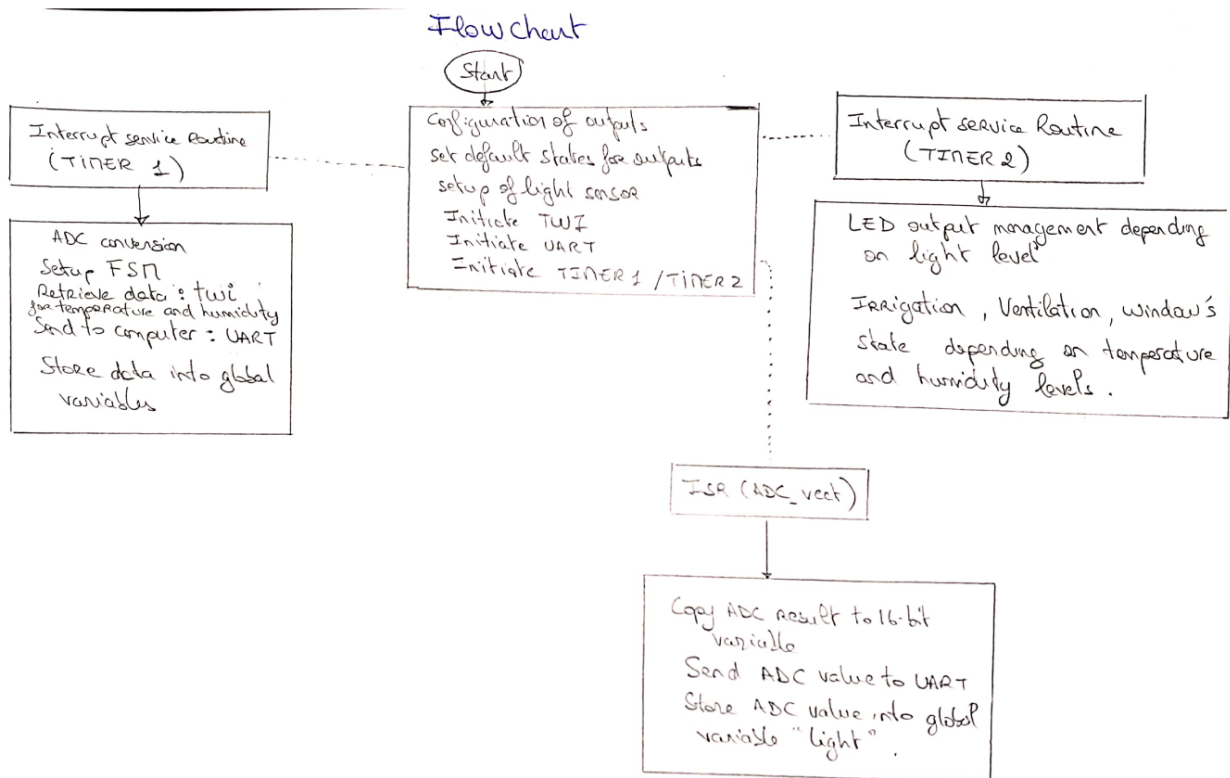 Flow Chart
Start
Interrupt service Routine
(TIMER 1)
ADC conversion
Setup FSM
Retrieve data : twi
for temperature and humidity
Send to computer : UART
Store data into global
variables
Configuration of outputs
set default states for outputs
setup of light sensor
Initiate TWI
Initiate UART
Initiate TIMER 1 / TIMER 2
Interrupt service Routine
(TIMER 2)
LED output management depending
on light level
Irrigation, Ventilation, window's
state depending on temperature
and humidity levels.
ISR (ADC_vect)
Copy ADC result to 16-bit
variable
Send ADC value to UART
Store ADC value into global
variable "light".